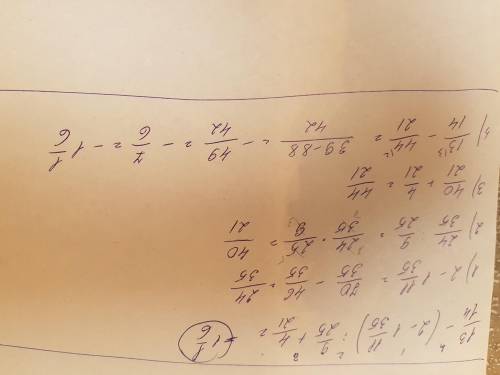 13/14 - (2 - 1 11/35) : 9/25 + 4/21 = -1 1/6
1) 2 - 1 11/35 = 70/35 - 46/35 = 24/35
2) 24/35 : 9/25 = 24/35 · 25/9 = 40/21
3) 40/21 + 4/21 = 44/21
4) 13/14 - 44/21 = 39-88/42 = - 49/42 = - 7/6 = - 1 1/6